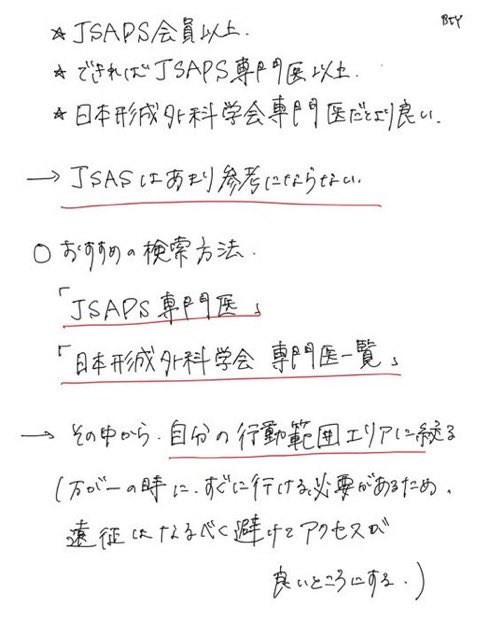 BTY
☆ JSAPS会員以上.
☆ できればJSAPS専門医以上.
☆ 日本形成外科学会専門医だとより良い.
→ JSASはあまり参考にならない.
○ おすすめの検索方法.
「JSAPS専門医」
「日本形成外科学会 専門医一覧」
→ その中から.自分の行動範囲エリアに絞る
(万が一の時に.すぐに行ける必要があるため.
遠征はなるべく避けてアクセスが
良いところにする.)